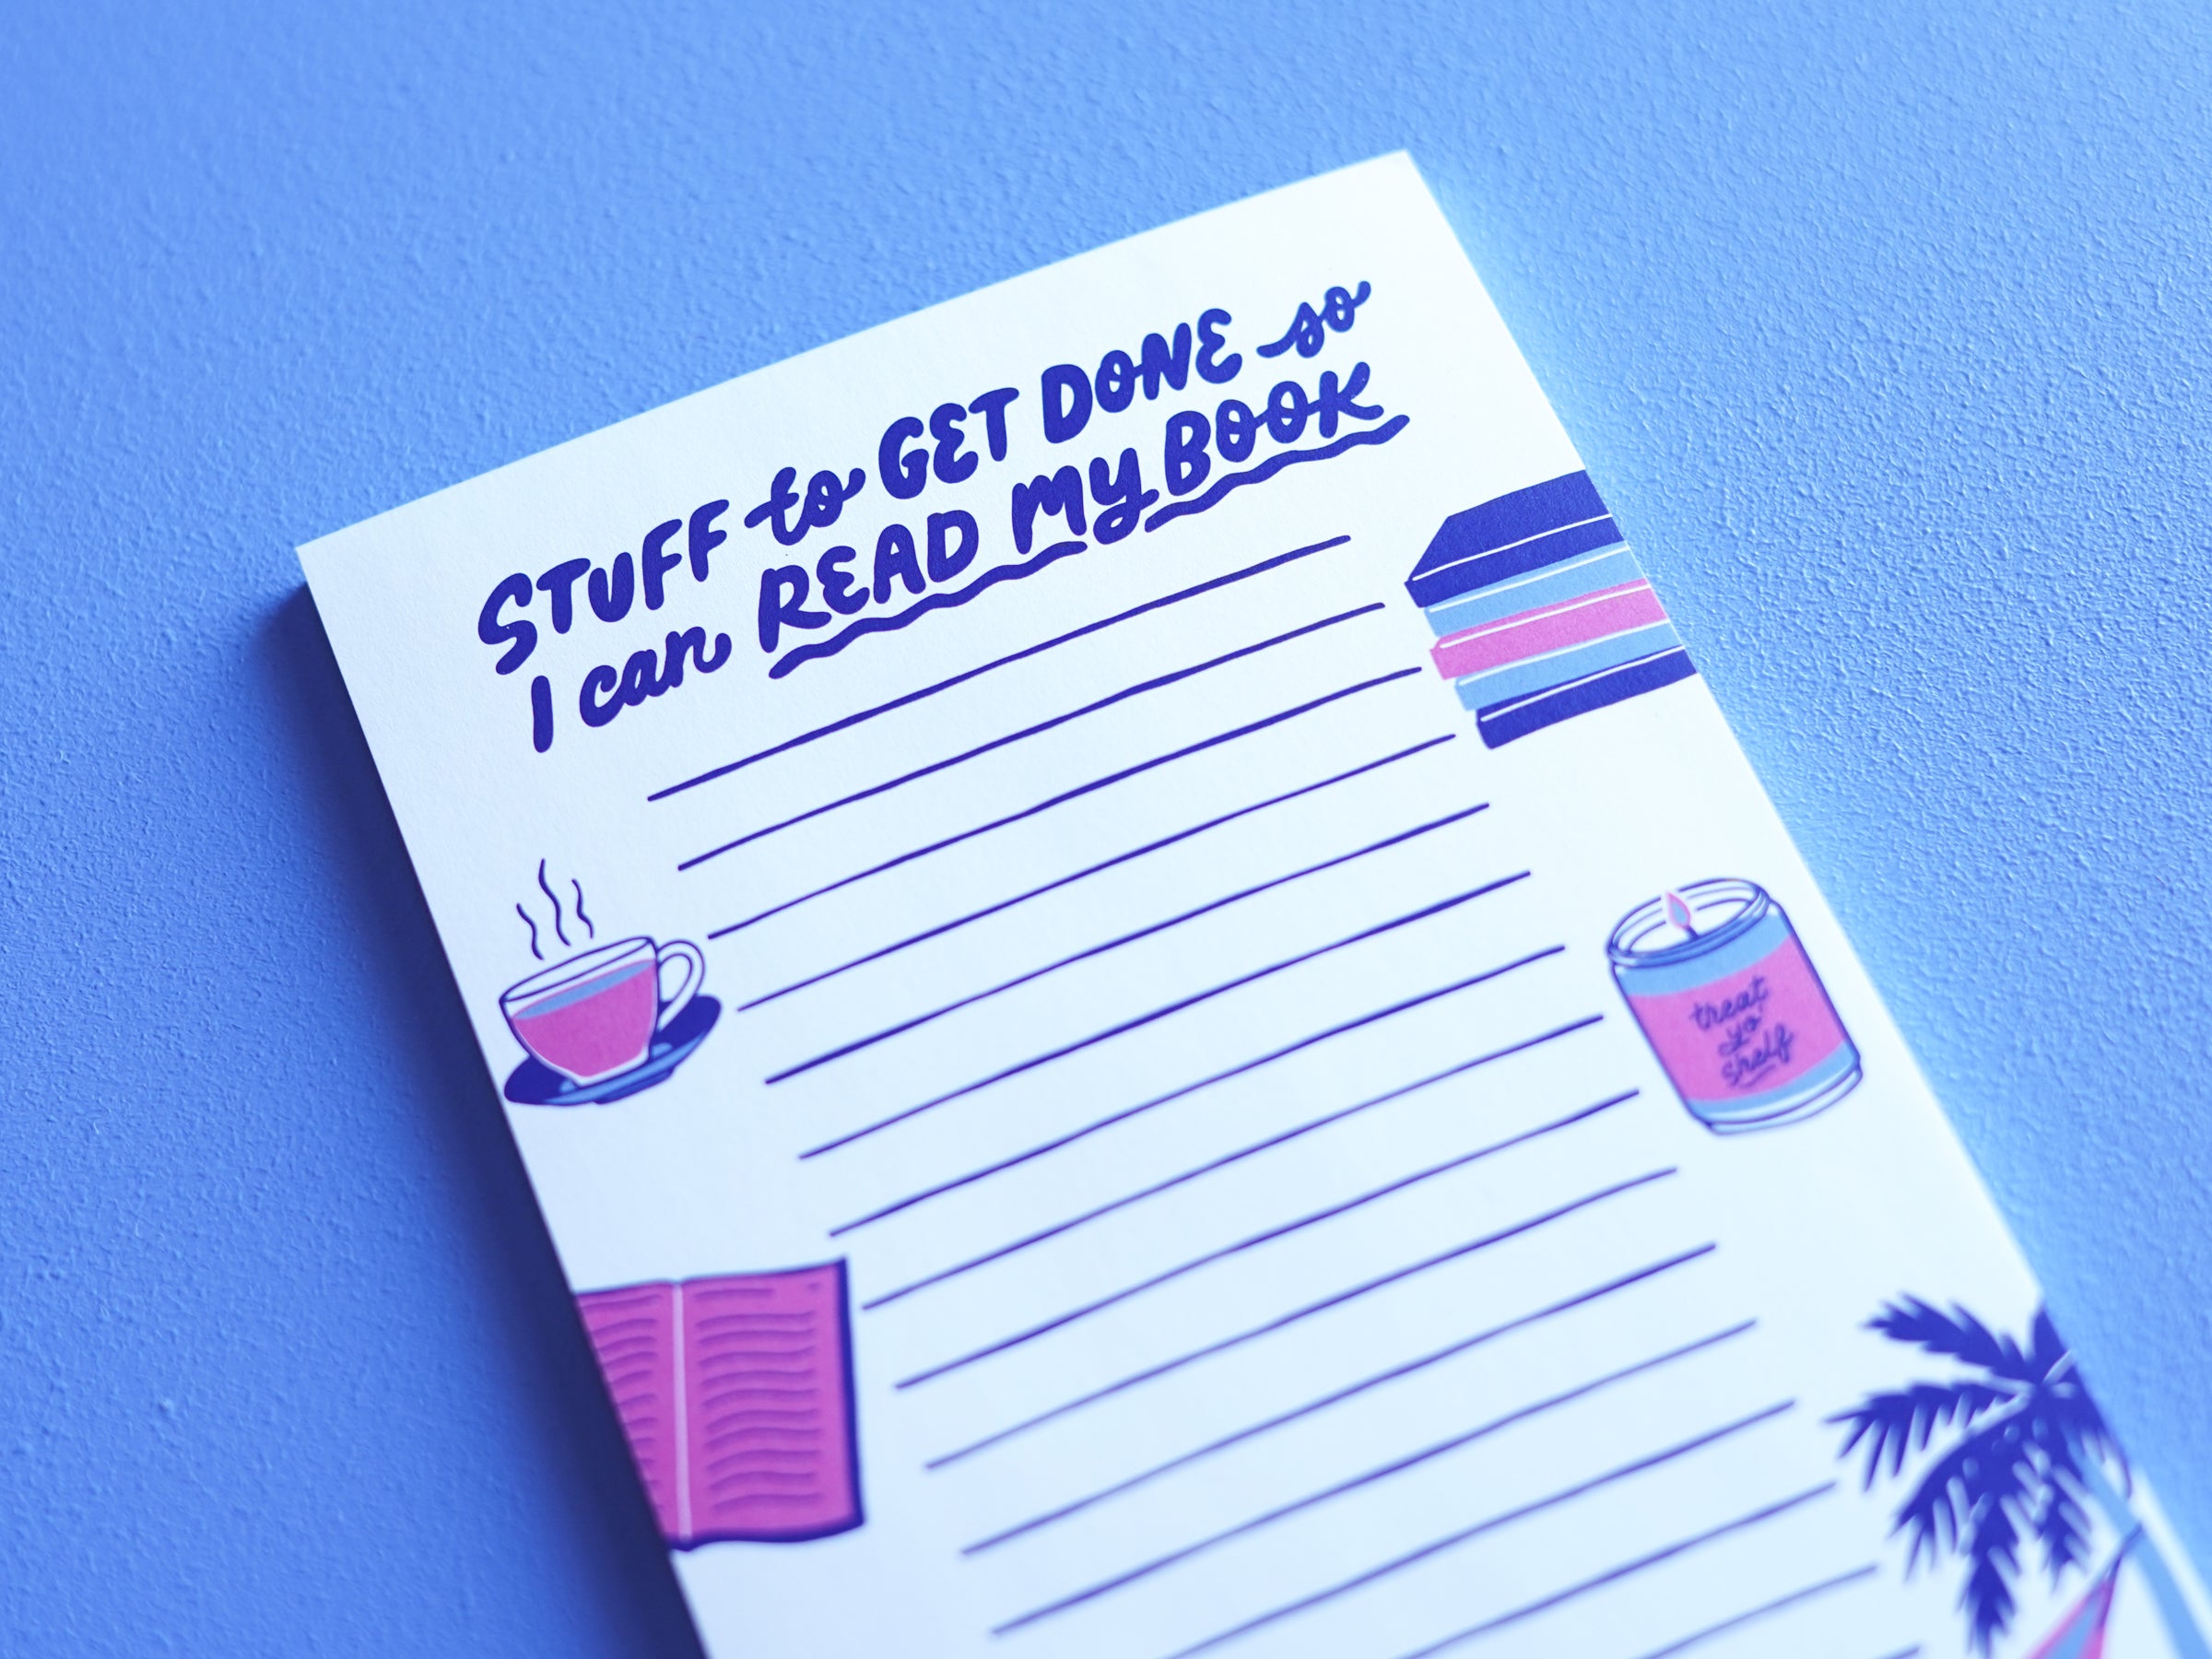 STUFF to GET DONE so
I can READ MY BOOK
treat
yo'
shelf